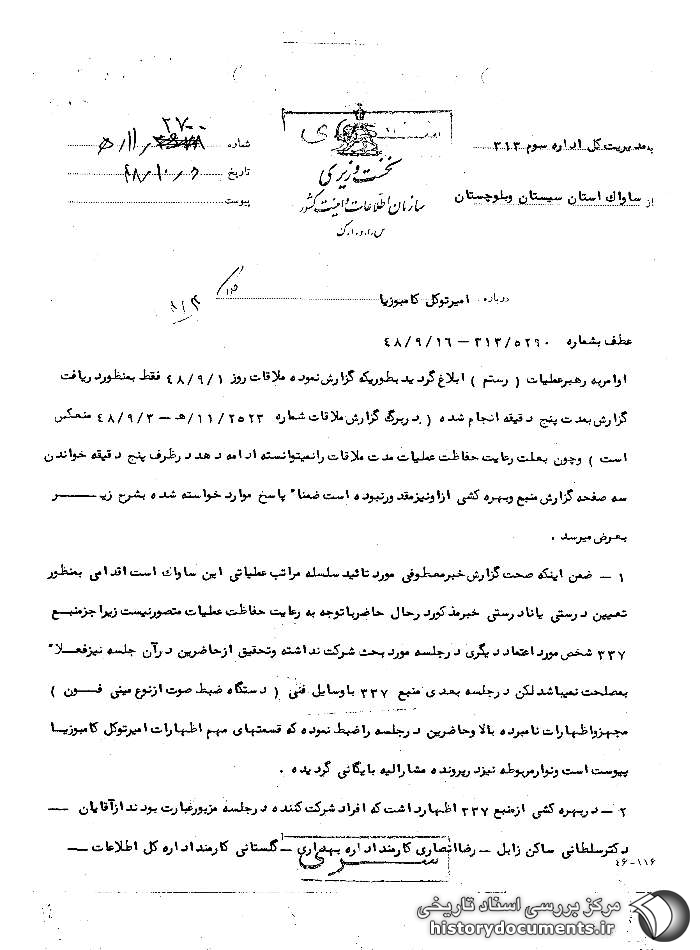 به مدیریت کل اداره سوم ۳۱۳
از ساواک استان سیستان وبلوچستان
نخست وزیری
سازمان اطلاعات و امنیت کشور
س.ا.و.ا.ک
شماره ۲۷۰۰ /۱۱/ ه
تاریخ ۴۸/۱۰/۵
پیوست
درباره امیرتوکل کامبوزیا
عطف بشماره ۳۱۳/۵۲۹۰ – ۴۸/۹/۱۶
اوامربه رهبرعملیات ( رستم ) ابلاغ گردید بطوریکه گزارش نموده ملاقات روز ۴۸/۹/۱ فقط بمنظورد ریافت
گزارش بمدت پنج دقیقه انجام شده ( دربرگ گزارش ملاقات شماره ۲۵۲۳/۱۱/هـ – ۴۸/۹/۳ منعکس
است ) وچون بعلت رعایت حفاظت عملیات مدت ملاقات رانمیتوانسته ادامه دهد درظرف پنج دقیقه خواندن
سه صفحه گزارش منبع وبهره کشی ازاونیزمقدورنبوده است ضمنا" پاسخ موارد خواسته شده بشرح زیــــر
بعرض میرسد .
۱ – ضمن اینکه صحت گزارش خبرمعطوفی مورد تائید سلسله مراتب عملیاتی این ساواک است اقدامی بمنظور
تعیین درستی یانادرستی خبرمذکورد رحال حاضرباتوجه به رعایت حفاظت عملیات متصورنیست زیرا جزمنبع
۳۳۷ شخص مورد اعتماد دیگری درجلسه مورد بحث شرکت نداشته وتحقیق ازحاضرین درآن جلسه نیزفعـلا"
بمصلحت نمیباشد لکن درجلسه بعدی منبع ۳۳۷ باوسایل فنی ( دستگاه ضبط صوت ازنوع مینی فــون )
مجهزواظهارات نامبرده بالا وحاضرین درجلسه راضبط نموده که قسمتهای مهم اظهارات امیرتوکل کامبوزیـا
پیوست است ونوارمربوطه نیزد رپرونده مشارالیه بایگانی گردیده .
۲ – دربهره کشی ازمنبع ۳۳۷ اظهارداشت که افراد شرکت کننده درجلسه مزبورعبارت بودند ازآقایان –
دکترسلطانی ساکن زابل – رضاانصاری کارمنداداره بهداری – گلستانی کارمنداداره کل اطلاعات –
سری
۴۶-۱۱۶
مرکز بررسی اسناد تاریخی
historydocuments.ir